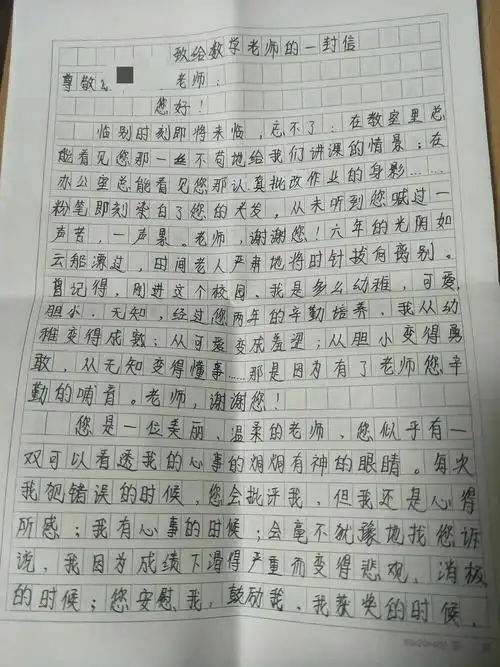 致给数学老师的一封信
尊敬的 老师:
您好!
临别时刻即将来临,忘不了:在教室里总
能看见您那一丝不苟地给我们讲课的情景;在
办公室总能看见您那认真批改作业的身影……
粉笔即刻染白了您的头发,从未听到您喊过一
声苦,一声累。老师,谢谢您!六年的光阴如
云能漂过,时间老人严肃地将时针拔向离别。
曾记得,刚进这个校园、我是多么幼稚,可爱,
胆小、无知,经过您两年的辛勤培养,我从幼
稚变得成熟;从可爱变成羞涩;从胆小变得勇
敢,从无知变得懂事……那是因为有了老师您辛
勤的哺育。老师,谢谢您!
您是一位美丽、温柔的老师、您似乎有一
双可以看透我的心事的炯炯有神的眼睛。每次
我犯错误的时候,您会批评我,但我还是心得
所感;我有心事的时候;会毫不犹豫地找您诉
说,我因为成绩下滑得严重而变得悲观、消极
的时候;您安慰我,鼓励我,我获奖的时候,